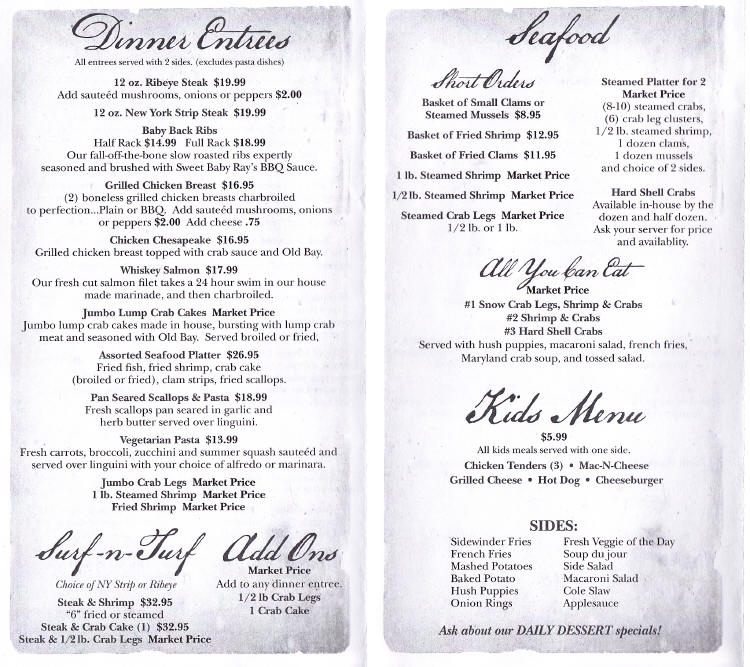 Dinner Entrees
All entrees served with 2 sides. (excludes pasta dishes)
12 oz. Ribeye Steak $19.99
Add sauteéd mushrooms, onions or peppers $2.00
12 oz. New York Strip Steak $19.99
Baby Back Ribs
Half Rack $14.99 Full Rack $18.99
Our fall-off-the-bone slow roasted ribs expertly
seasoned and brushed with Sweet Baby Ray's BBQ Sauce.
Grilled Chicken Breast $16.95
(2) boneless grilled chicken breasts charbroiled
to perfection...Plain or BBQ. Add sauteéd mushrooms, onions
or peppers $2.00 Add cheese .75
Chicken Chesapeake $16.95
Grilled chicken breast topped with crab sauce and Old Bay.
Whiskey Salmon $17.99
Our fresh cut salmon filet takes a 24 hour swim in our house
made marinade, and then charbroiled.
Jumbo Lump Crab Cakes Market Price
Jumbo lump crab cakes made in house, bursting with lump crab
meat and seasoned with Old Bay. Served broiled or fried,
Assorted Seafood Platter $26.95
Fried fish, fried shrimp, crab cake
(broiled or fried), clam strips, fried scallops.
Pan Seared Scallops & Pasta $18.99
Fresh scallops pan seared in garlic and
herb butter served over linguini.
Vegetarian Pasta $13.99
Fresh carrots, broccoli, zucchini and summer squash sauteéd and
served over linguini with your choice of alfredo or marinara.
Jumbo Crab Legs Market Price
1 lb. Steamed Shrimp Market Price
Fried Shrimp Market Price
Surf-n-Turf
Choice of NY Strip or Ribeye
Steak & Shrimp $32.95
"6" fried or steamed
Steak & Crab Cake (1) $32.95
Steak & 1/2 lb. Crab Legs Market Price
Add Ons
Market Price
Add to any dinner entree.
1/2 lb Crab Legs
1 Crab Cake
Seafood
Short Orders
Basket of Small Clams or
Steamed Mussels $8.95
Basket of Fried Shrimp $12.95
Basket of Fried Clams $11.95
1 lb. Steamed Shrimp Market Price
1/2 lb. Steamed Shrimp Market Price
Steamed Crab Legs Market Price
1/2 lb. or 1 lb.
Steamed Platter for 2
Market Price
(8-10) steamed crabs,
(6) crab leg clusters,
1/2 lb. steamed shrimp,
1 dozen clams,
1 dozen mussels
and choice of 2 sides.
Hard Shell Crabs
Available in-house by the
dozen and half dozen.
Ask your server for price
and availablity.
All You Can Eat
Market Price
#1 Snow Crab Legs, Shrimp & Crabs
#2 Shrimp & Crabs
#3 Hard Shell Crabs
Served with hush puppies, macaroni salad, french fries,
Maryland crab soup, and tossed salad.
Kids Menu
$5.99
All kids meals served with one side.
Chicken Tenders (3) • Mac-N-Cheese
Grilled Cheese • Hot Dog • Cheeseburger
SIDES:
Sidewinder Fries
French Fries
Mashed Potatoes
Baked Potato
Hush Puppies
Onion Rings
Fresh Veggie of the Day
Soup du jour
Side Salad
Macaroni Salad
Cole Slaw
Applesauce
Ask about our DAILY DESSERT specials!